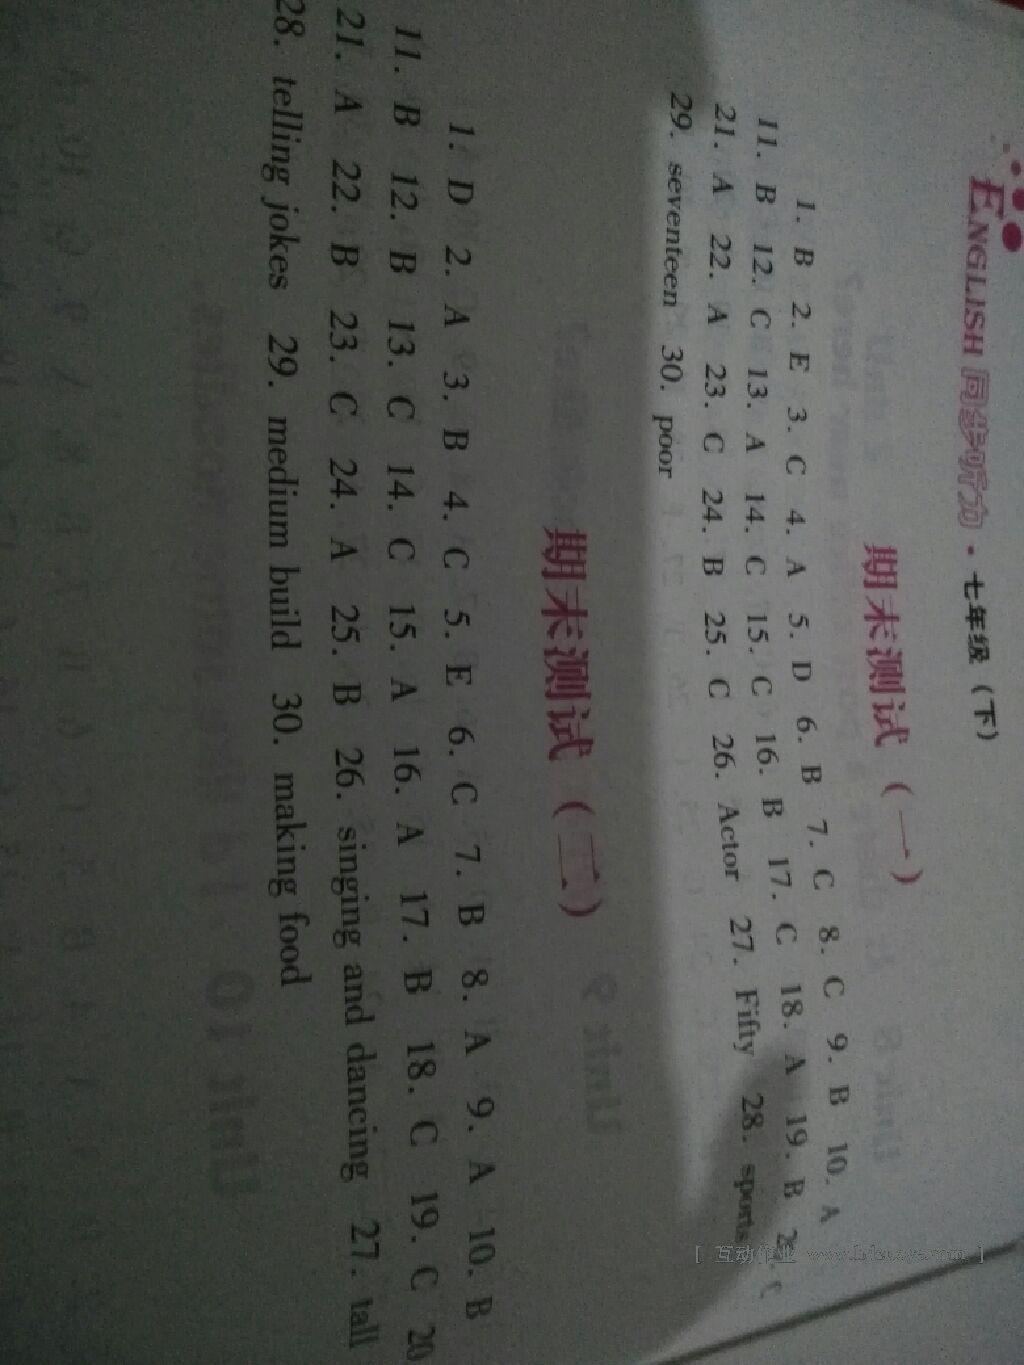 ENGLISH 同步听力·七年级（下）
期末测试（一）
1. B 2. E 3. C 4. A 5. D 6. B 7. C 8. C 9. B 10. A
11. B 12. C 13. A 14. C 15. C 16. B 17. C 18. A 19. B 2 C
21. A 22. A 23. C 24. B 25. C 26. Actor 27. Fifty 28. sports
29. seventeen 30. poor
期末测试（二）
1. D 2. A 3. B 4. C 5. E 6. C 7. B 8. A 9. A 10. B
11. B 12. B 13. C 14. C 15. A 16. A 17. B 18. C 19. C 20
21. A 22. B 23. C 24. A 25. B 26. singing and dancing 27. tall
28. telling jokes 29. medium build 30. making food
[ 互动作业